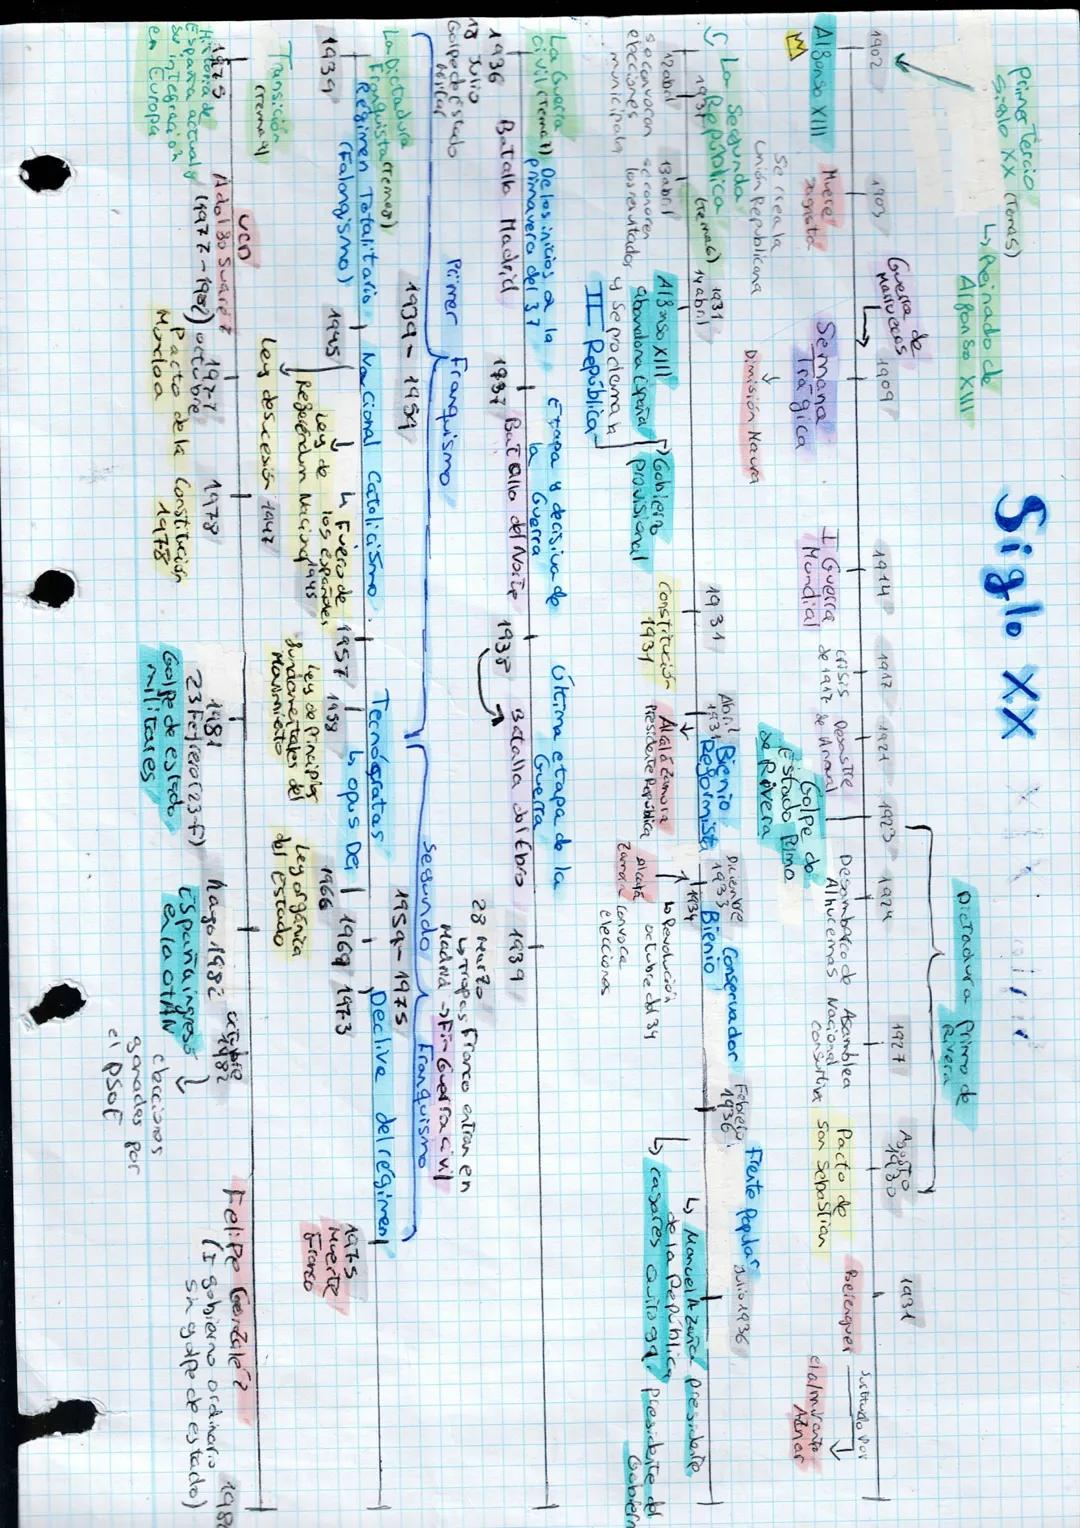 Siglo XX
Primer Tercio
Siglo XX (Tema5)
↳ Reinado de
Alfonso XIII
Dictadura Primo de
Rivera
1902
1903
1909
1914
1917
1921
1923
1924
1927
Agosto
1930
1931
Alfonso XIII
Muere
Sagasta
Guerra de
Marruecos
Semana
Trágica
I Guerra
Mundial
crisis
de 1917
Desastre
de Annual
Golpe de
Estado Primo
de Rivera
Desembarco de
Alhucemas
Asamblea
Nacional
consultiva
Pacto de
San Sebastian
Berenguer
sustituido por
el almirante
Aznar
Se crea la
Unión Republicana
Dimisión Maura
La Segunda
República (tema6)
12 abril
1931
se convocan
elecciones
municipales
13 abril
se conocen
los resultados
1931
14 abril
Alfonso XIII
abandona España
y se proclama la
II República
Gobierno
provisional
1931
Constitución
1931
Abril
1931
Bienio
Reformista
Alcalá Zamora
Presidente República
Diciembre
1933
1934
Bienio Conservador
↳ Revolución
octubre del 34
Alcalá
Zamora convoca
elecciones
Febrero
1936
Frente Popular
Julio 1936
↳ Manuel Azaña presidente
de la República
↳ casares Quiroga presidente del
Gobierno
La Guerra
Civil (Tema 7)
De los inicios a la
primavera del 37
Etapa y decisiva de
la Guerra
Última etapa de la
Guerra
1936
18 Julio
Golpe de Estado
Militar
Batalla Madrid
1937
Batalla del Norte
1938
Batalla del Ebro
1939
28 Marzo
↳ Tropas Franco entran en
Madrid → Fin Guerra civil
Primer Franquismo
1939 - 1959
Segundo Franquismo
1959 - 1975
La Dictadura
Franquista (Tema8)
1939
Régimen Totalitario
(Falangismo)
1945
Nacional Catolicismo
↳ Fuero de
los españoles
1945
Ley de
Referéndum Nacional
Ley de sucesión 1947
1957
1958
Tecnócratas
↳ opus Dei
Ley de Principios
fundamentales del
Movimiento
1966
Ley orgánica
del estado
1969
1973
Declive del régimen
1975
Muerte
Franco
Transición
(Tema 9)
1975
Historia de
España actual y
su integración
en Europa
UCD
Adolfo Suárez
(1977-1982)
octubre
1977
Pacto de la
Moncloa
1978
Constitución
1978
1981
23 Febrero (23-f)
Golpe de estado
militares
Mayo 1982
España ingresa
en la OTAN
octubre
1982
elecciones
ganadas por
el PSOE
Felipe González
(I gobierno ordinario
sin golpe de estado)